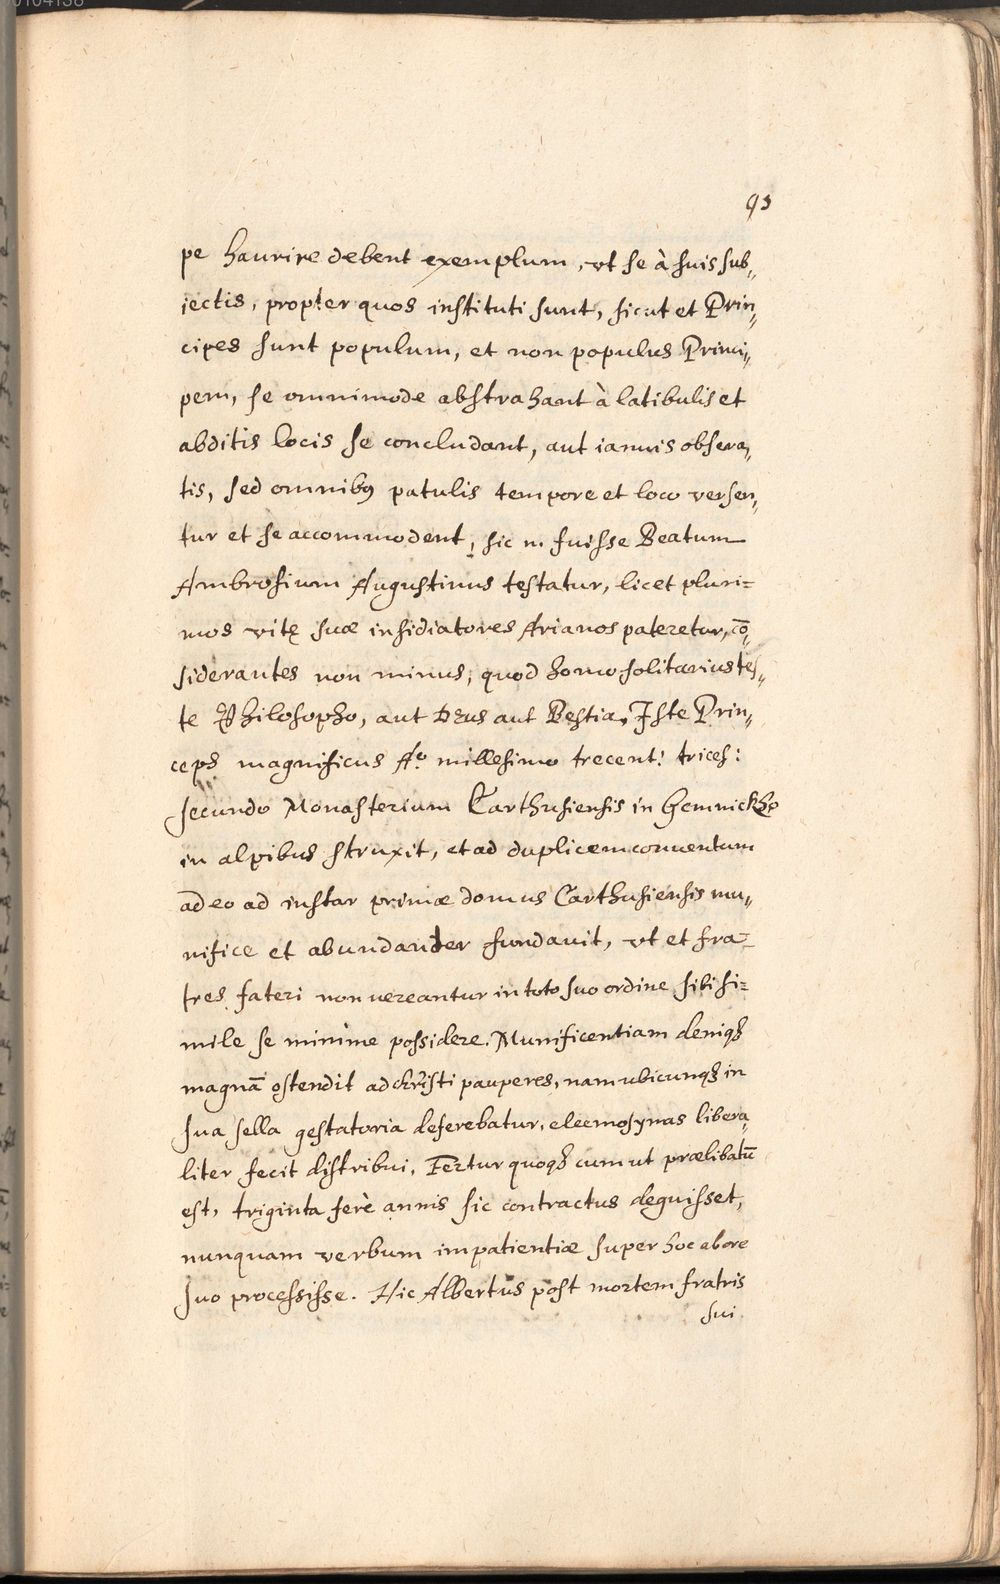 93
pe haurire debent exemplum, vt se à suis sub„
iectis, propter quos instituti sunt, sicut et Prin„
cipes sunt populum, et non populus Princi„
pem, se omnimode abstrahant à latibulis et
abditis locis se concludant, aut ianuis obsera„
tis, sed omnibꝯ patulis tempore et loco versen„
tur et se accommodent, sic n. fuisse Beatum
Ambrosium Augustinus testatur, licet pluri=
mos vitę suæ insidiatores Arianos pateretur, cō„
siderantes non minus, quod homo solitarius tes„
te Philosopho, aut Deus aut Bestia, Iste Prin„
ceps magnificus Aº millesimo trecent: trices:
secundo Monasterium Carthusiensis in Gemnickho
in alpibus struxit, et ad duplicem conuentum
adeo ad instar primæ domus Carthusiensis mu„
nifice et abundanter fundauit, vt et fra=
tres fateri non uereantur in toto suo ordine sibi si=
mile se minime possidere. Munificentiam deniqȝ
magnā ostendit ad christi pauperes, nam ubicunqȝ in
sua sella gestatoria deferebatur, eleemosynas libera„
liter fecit distribui, Fertur quoqȝ cum ut prælibatū
est, triginta ferè annis sic contractus deguisset,
nunquam verbum impatientiæ super hoc ab ore
suo processisse. Hic Albertus post mortem fratris
sui.